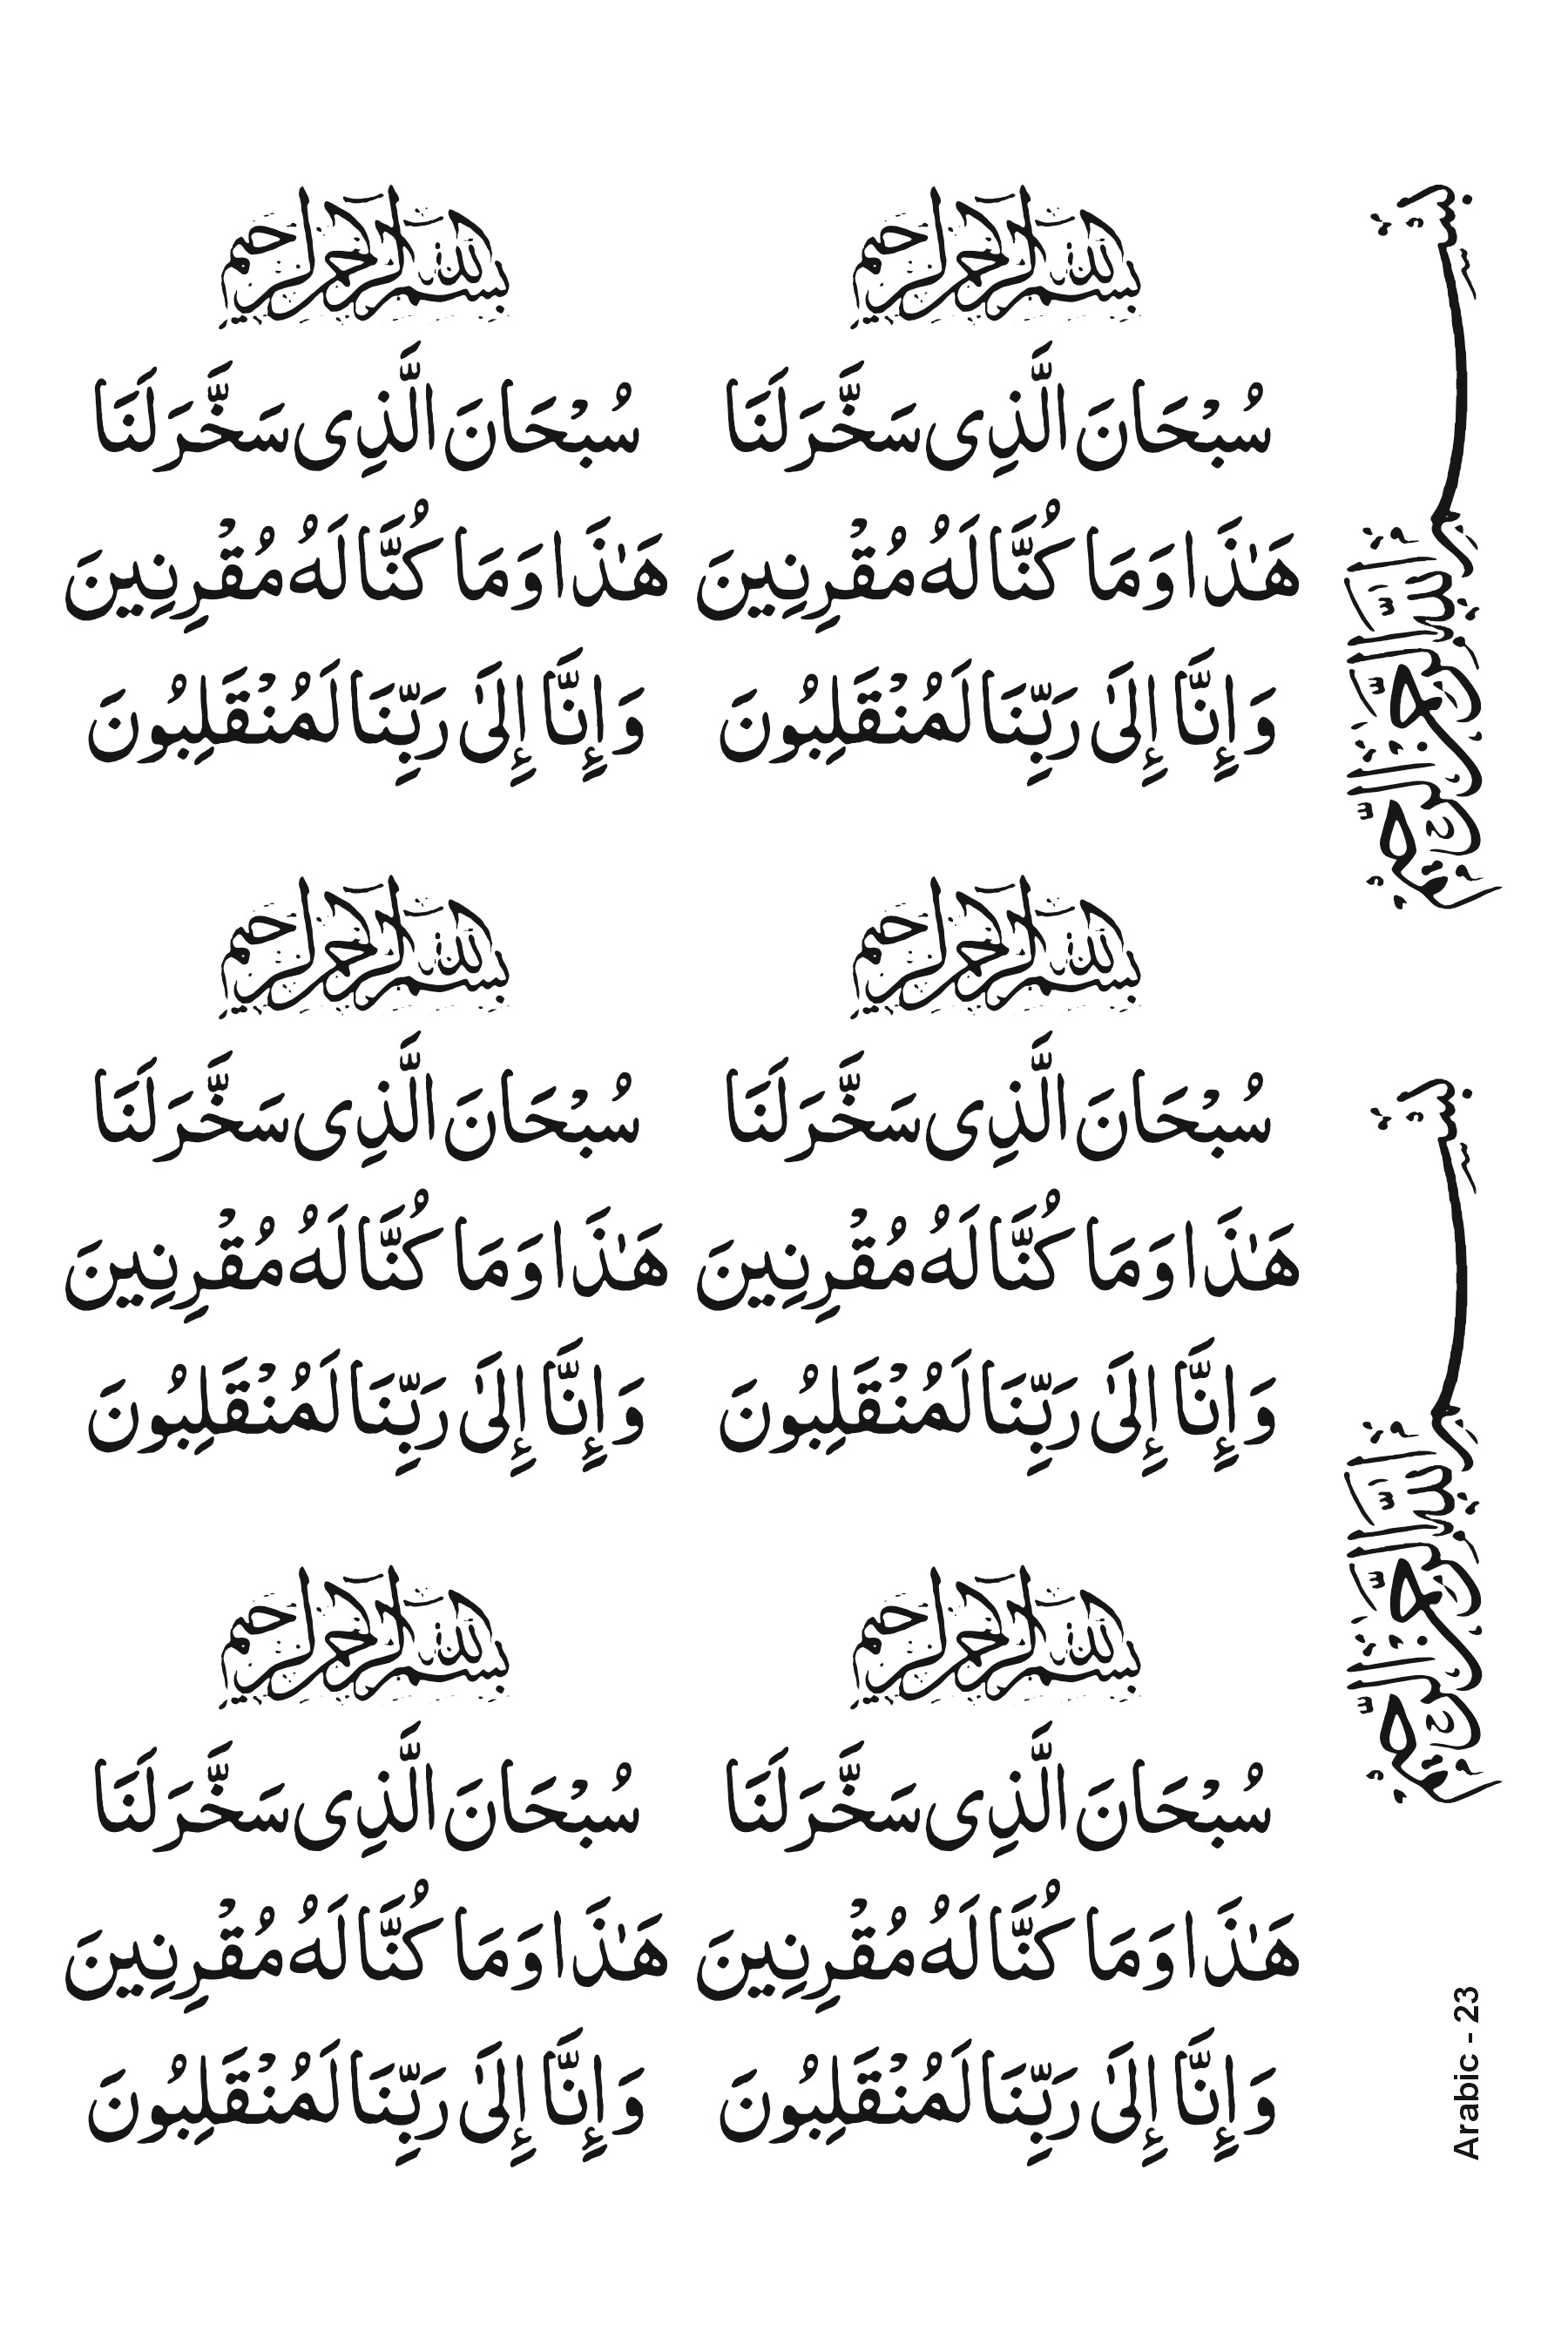 بسم الله الرحمن الرحيم
سُبْحَانَ الَّذِى سَخَّرَ لَنَا
هَٰذَا وَمَا كُنَّا لَهُ مُقْرِنِينَ
وَإِنَّا إِلَىٰ رَبِّنَا لَمُنْقَلِبُونَ
بسم الله الرحمن الرحيم
سُبْحَانَ الَّذِى سَخَّرَ لَنَا
هَٰذَا وَمَا كُنَّا لَهُ مُقْرِنِينَ
وَإِنَّا إِلَىٰ رَبِّنَا لَمُنْقَلِبُونَ
بسم الله الرحمن الرحيم
سُبْحَانَ الَّذِى سَخَّرَ لَنَا
هَٰذَا وَمَا كُنَّا لَهُ مُقْرِنِينَ
وَإِنَّا إِلَىٰ رَبِّنَا لَمُنْقَلِبُونَ
بسم الله الرحمن الرحيم
سُبْحَانَ الَّذِى سَخَّرَ لَنَا
هَٰذَا وَمَا كُنَّا لَهُ مُقْرِنِينَ
وَإِنَّا إِلَىٰ رَبِّنَا لَمُنْقَلِبُونَ
بسم الله الرحمن الرحيم
سُبْحَانَ الَّذِى سَخَّرَ لَنَا
هَٰذَا وَمَا كُنَّا لَهُ مُقْرِنِينَ
وَإِنَّا إِلَىٰ رَبِّنَا لَمُنْقَلِبُونَ
بسم الله الرحمن الرحيم
سُبْحَانَ الَّذِى سَخَّرَ لَنَا
هَٰذَا وَمَا كُنَّا لَهُ مُقْرِنِينَ
وَإِنَّا إِلَىٰ رَبِّنَا لَمُنْقَلِبُونَ
بسم الله الرحمن الرحيم
بسم الله الرحمن الرحيم
Arabic - 23